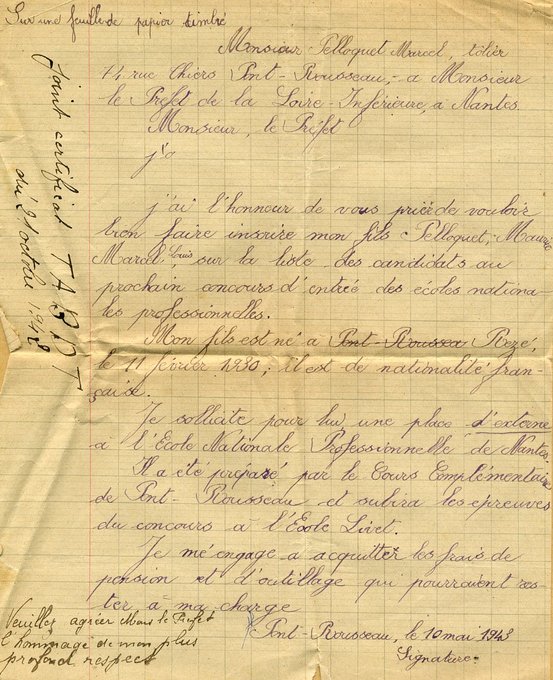 Sur une feuille de papier timbré
Monsieur Pelloquet Marcel, tôlier
14 rue Thiers Pont-Rousseau, - a Monsieur
le Préfet de la Loire-Inférieure, a Nantes.
Monsieur, le Préfet
j'a
j'ai l'honneur de vous prier de vouloir
bien faire inscrire mon fils Pelloquet, Maurice
Marcel Louis sur la liste des candidats au
prochain concours d'entrée des écoles nationa-
les professionnelles.
Mon fils est né a Pont-Rousseau Rezé,
le 11 février 1930; il est de nationalité fran-
çaise.
Je sollicite pour lui une place d'externe
a l'Ecole Nationale Professionnelle de Nantes.
Il a été préparé par le Cours Complémentaire
de Pont-Rousseau et subira les épreuves
du concours a l'Ecole Livet.
Je m'engage a acquitter les frais de
pension et d'outillage qui pourraient res-
ter a ma charge
Pont-Rousseau, le 10 mai 1943
Signature
Veuillez agréer Mons le Préfet
l'hommage de mon plus
profond respect
joint certificat T A B D T
du 21 octobre 1942